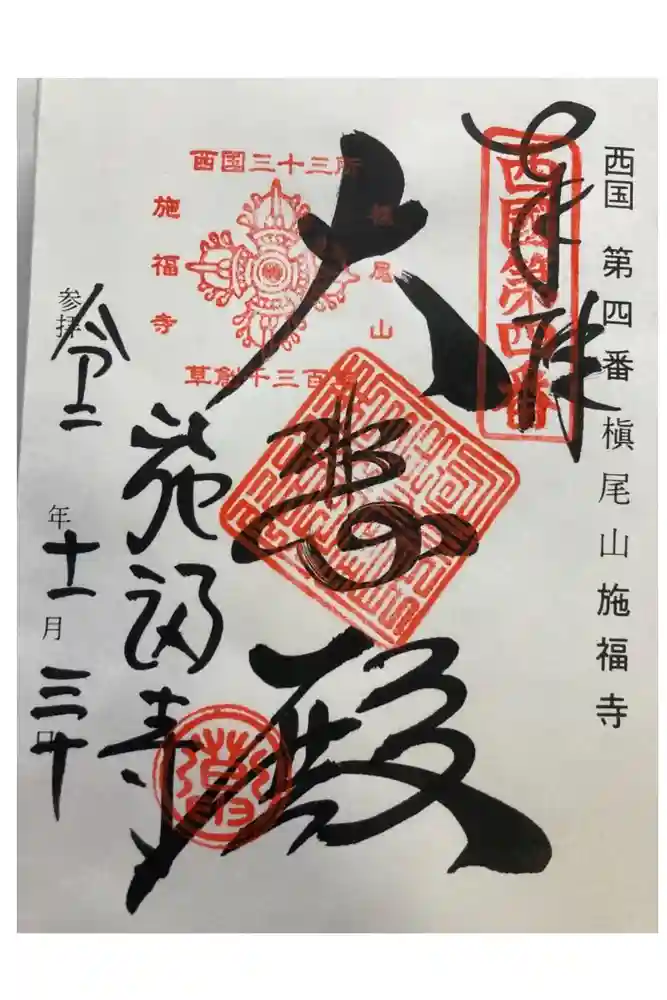 西国 第四番 槇尾山 施福寺
西國第四番
奉拝
西国三十三所
槇尾山
施福寺
草創千三百年
大悲殿
施福寺
参拝 令二年十一月三十日